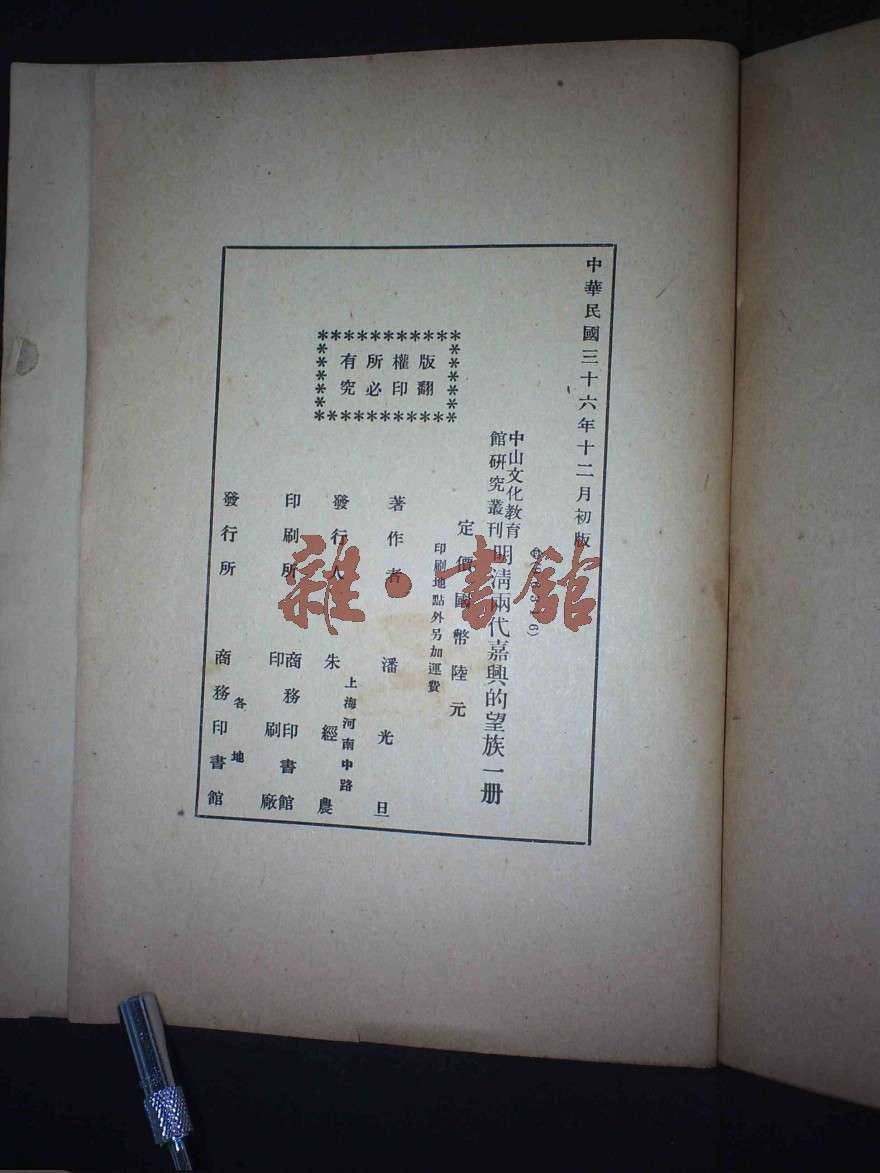 中華民國三十六年十二月初版
中山文化教育
館研究叢刊
明清兩代嘉興的望族一册
定價國幣陸元
印刷地點外另加運費
版權所有
翻印必究
著作者 潘光旦
上海河南中路
發行人 朱經農
印刷所 商務印書館
印刷廠
發行所 各地
商務印書館
雜·書館